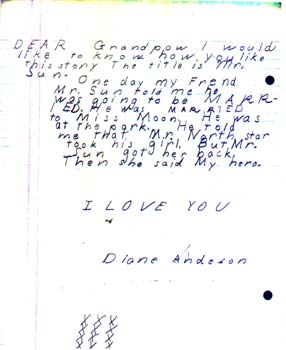 DEAR Grandpow I would
like to know how you like
this story The title is Mr.
Sun. One day my Frend
Mr. Sun told me he
was going to be MARR-
IED. He was MARRIED
to Miss Moon. He was
at the park. He told
me that Mr. North star
took his girl. But Mr.
Sun got her back.
Then she said My hero.
I LOVE YOU
Diane Anderson
XXX
XXX
XXX